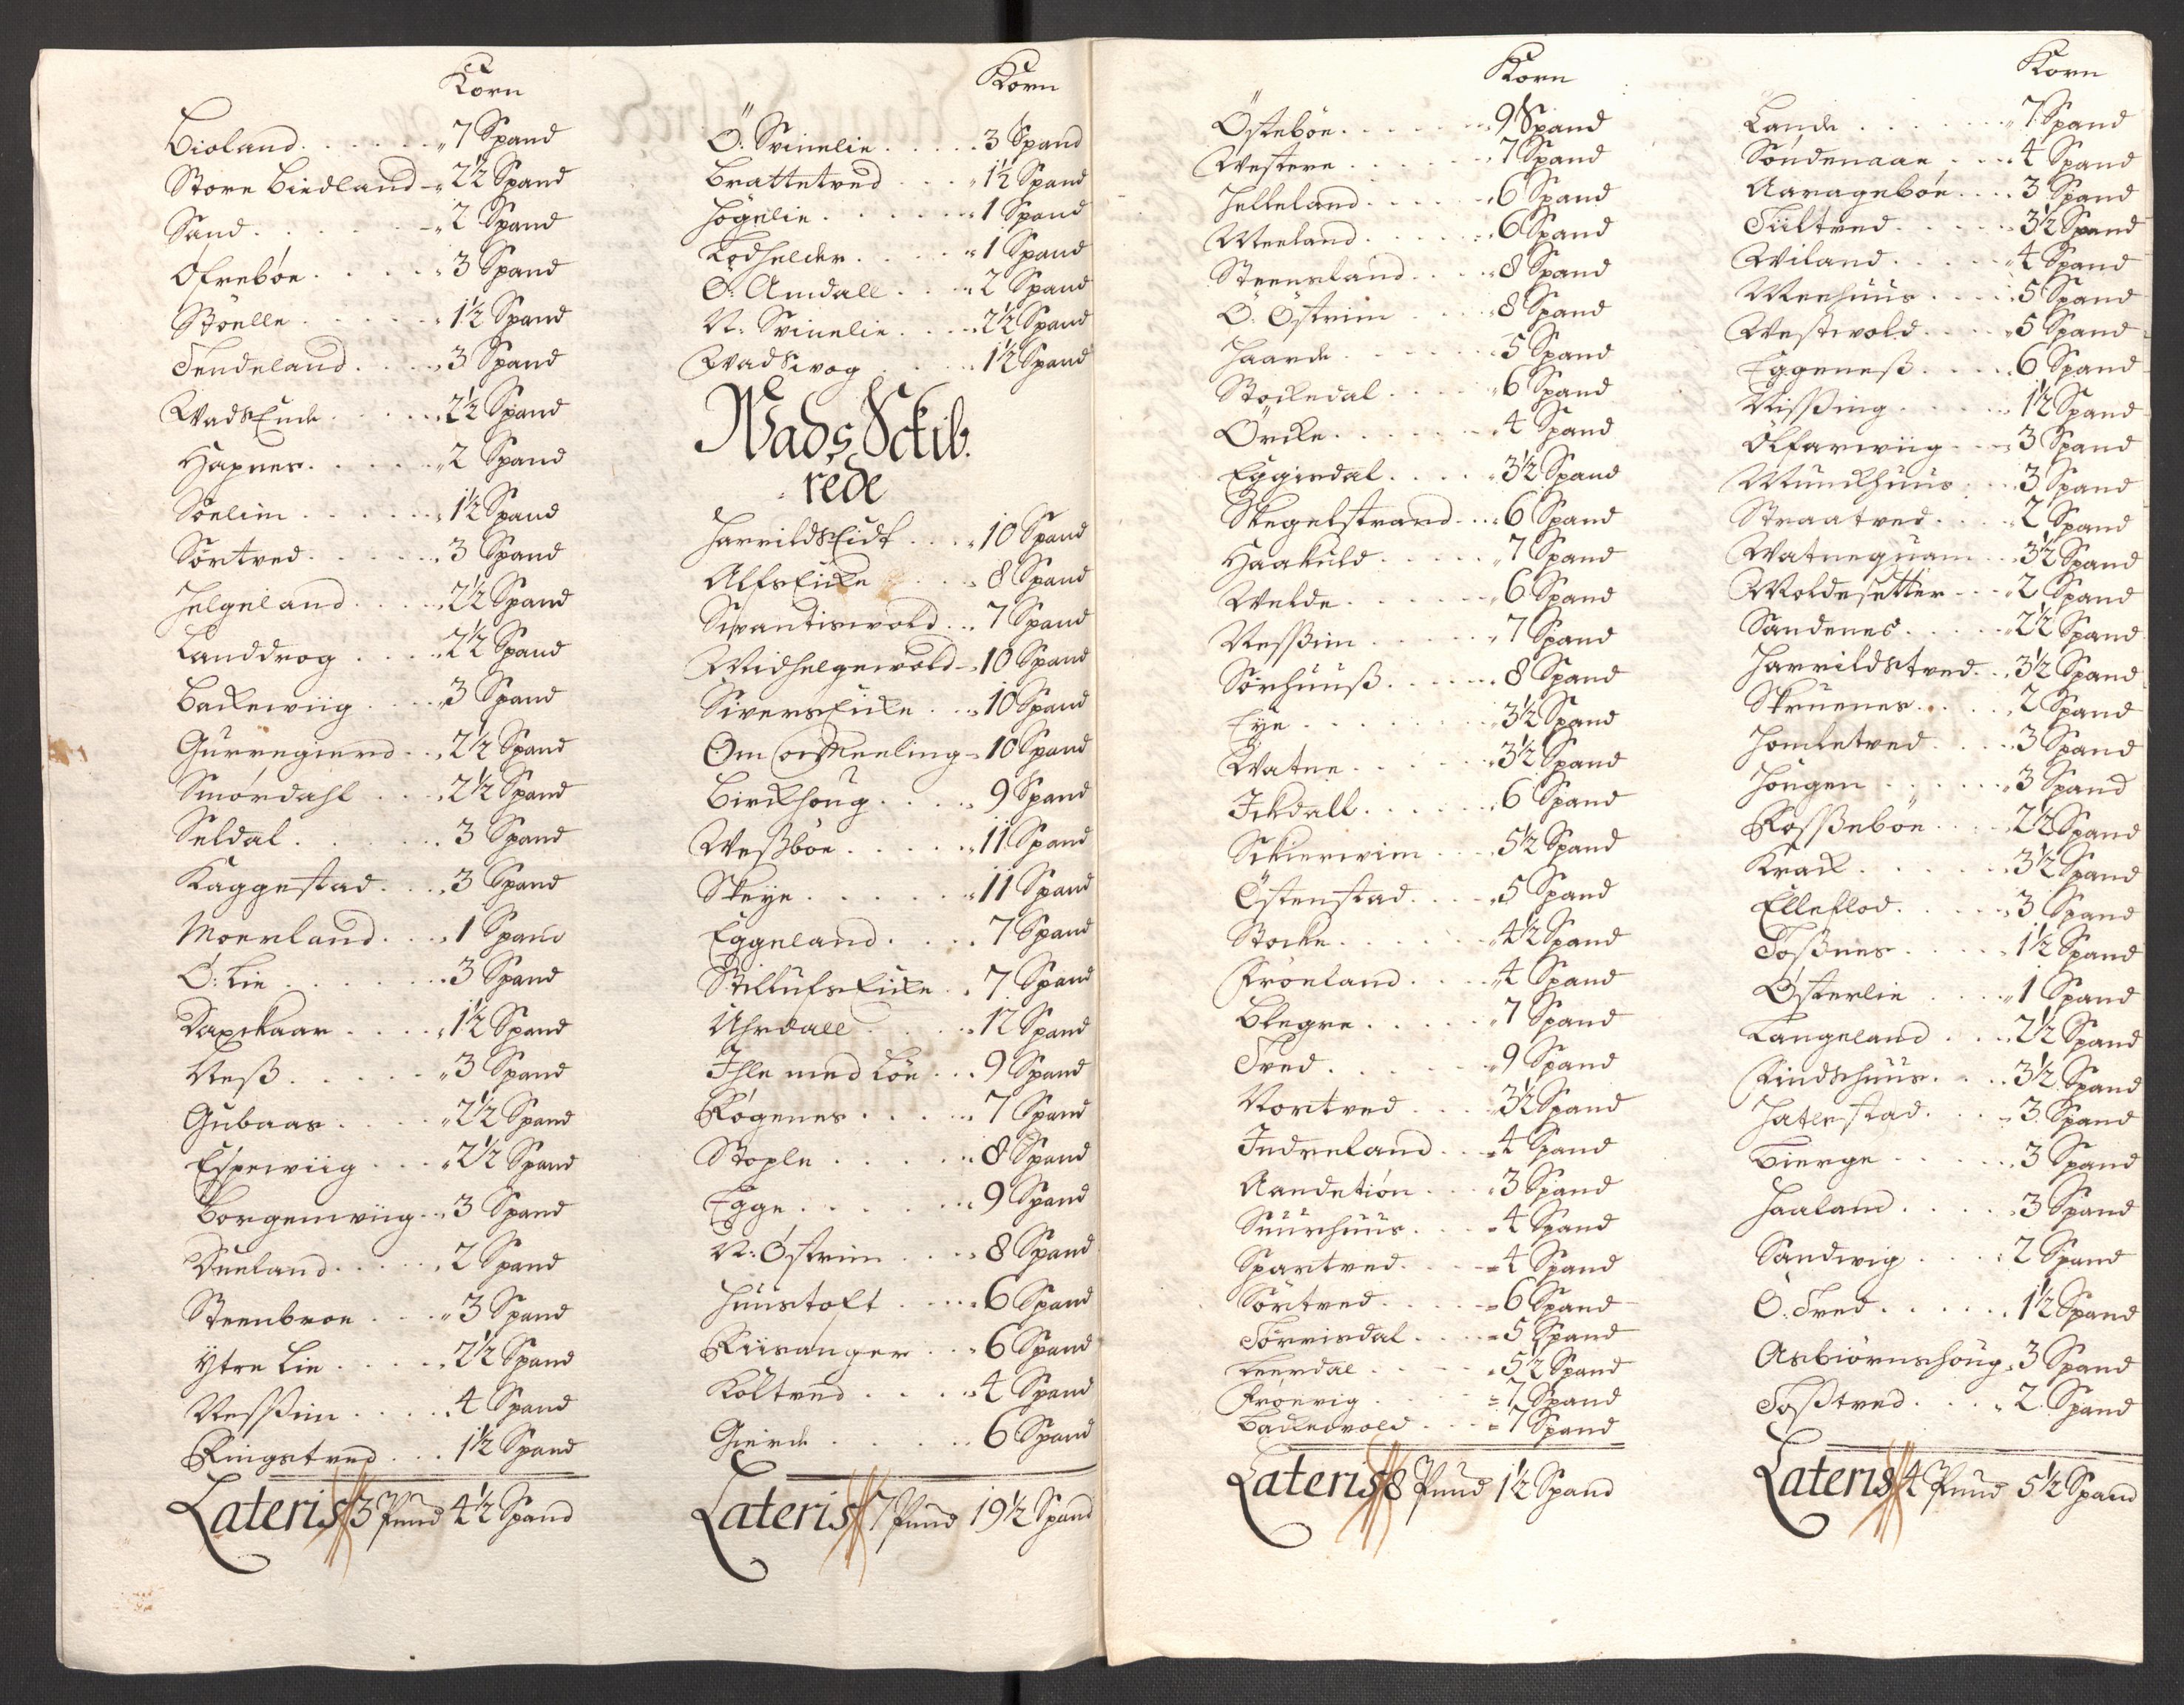 Korn
Bioland . . . . . . 7 Spand
Store Biedland - 2½ Spand
Sand . . . . . . 2 Spand
Ofrebøe . . . . . 3 Spand
Støelle . . . . . 1½ Spand
Tendeland . . . . 3 Spand
WadsEnde . . . . 2½ Spand
Hapnes . . . . . 2 Spand
Søelim . . . . . 1½ Spand
Sørtved . . . . . 3 Spand
Helgeland . . . . 2½ Spand
Landdrog . . . . 2½ Spand
Backewiig . . . . 3 Spand
Gurregierd . . . 2½ Spand
Smørdahl . . . . 2½ Spand
Seldal . . . . . . 3 Spand
Kaggestad . . . . 3 Spand
Moerland . . . . 1 Spand
Ø: Lie . . . . . . 3 Spand
Daxskaar . . . . 1½ Spand
Neß . . . . . . 3 Spand
Gubaas . . . . . 2½ Spand
Espewiig . . . . 2½ Spand
Borgemviig . . . 3 Spand
Dueland . . . . . 2 Spand
Steenbroe . . . . 3 Spand
Ytre Lie . . . . . 2½ Spand
Neßsim . . . . . 4 Spand
Ringstved . . . 1½ Spand
Lateris 3 Pund 4½ Spand
Korn
Ö: Svinelie . . . . . 3 Spand
Brattetved . . . 1½ Spand
Høgelie . . . . . . 1 Spand
Lodhelder . . . . . 1 Spand
Ø: Amdall . . . . 2 Spand
N: Svinelie . . . . 2½ Spand
Wadswog . . . . 1½ Spand
Wads Sckib.
rede
HarrildsEidt . . . 10 Spand
AlfsEicke . . . . 8 Spand
Swantiswold . . . 7 Spand
Midhelgewold - 10 Spand
SiversEicke . . . 10 Spand
Om or Meeling - 10 Spand
Birckhoug . . . . 9 Spand
Weßbøe . . . . . 11 Spand
Skeye . . . . . . 11 Spand
Eggeland . . . . 7 Spand
StillufsEicke . . 7 Spand
Uhrdall . . . . . 12 Spand
Ihle med Løe . . . 9 Spand
Røgenes . . . . . 7 Spand
Stople . . . . . . 8 Spand
Egge . . . . . . . 9 Spand
N: Østrim . . . . 8 Spand
Huustoft . . . . . 6 Spand
Riisanger . . . 6 Spand
Koltved . . . . . 4 Spand
Gierde . . . . . . 6 Spand
Lateris 7 Pund 19½ Spand
Korn
Östebøe . . . . . . 9 Spand
Westere . . . . . 7 Spand
Helleland . . . . . 6 Spand
Meeland . . . . . 6 Spand
Steensland . . . . 8 Spand
Ö: Östrim . . . . 8 Spand
Haarde . . . . . . 5 Spand
Stockedal . . . . 6 Spand
Örcke . . . . . . 4 Spand
Eggisdal . . . . 3½ Spand
Skegelstrand . . . 6 Spand
Haakuld . . . . . 7 Spand
Welde . . . . . . 6 Spand
Neßsim . . . . . 7 Spand
Sørhuuß . . . . . 8 Spand
Eye . . . . . . . 3½ Spand
Watne . . . . . . 3½ Spand
Ickdall . . . . . . 6 Spand
Sckierwim . . . 5½ Spand
Östenstad . . . . 5 Spand
Stocke . . . . . . 4½ Spand
Frøeland . . . . 4 Spand
Blegre . . . . . . 7 Spand
Tved . . . . . . . 9 Spand
Nortved . . . . . 3½ Spand
Indreland . . . 4 Spand
Aandetiøn . . . 3 Spand
Suurhuus . . . . 4 Spand
Spartved . . . . = 4 Spand
Sørtved . . . . = 6 Spand
Tørrisdal . . . . = 5 Spand
Leerdal . . . . . 5½ Spand
Frøevig . . . . = 7 Spand
Backevold . . . = 7 Spand
Lateris 8 Pund 1½ Spand
Korn
Lande . . . . . . 7 Spand
Søndenaae . . . . 4 Spand
Aaragebøe . . . . 3 Spand
Tiiltved . . . . . 3½ Spand
Wiland . . . . . 4 Spand
Meehuus . . . . . 5 Spand
Westwold . . . . 5 Spand
Eggeneß . . . . . 6 Spand
Nißsing . . . . . 1½ Spand
Ølfarwiig . . . . 3 Spand
Munckhuus . . . 3 Spand
Straatved . . . . 2 Spand
Watnequam . . . 3½ Spand
Moldesetter . . . 2 Spand
Sandenes . . . . . 2½ Spand
Harrildstved . . 3½ Spand
Skruenes . . . . . 2 Spand
Homletved . . . . 3 Spand
Hougen . . . . . . 3 Spand
Roßsebøe . . . . 2½ Spand
Krack . . . . . . 3½ Spand
Elleflod . . . . . 3 Spand
Toßnes . . . . . 1½ Spand
Østerlie . . . . . 1 Spand
Langeland . . . . 2½ Spand
Findshuus . . . . 3½ Spand
Hatlestad . . . . 3 Spand
Bierge . . . . . . 3 Spand
Haaland . . . . . 3 Spand
Sandwig . . . . . 2 Spand
Ö: Tved . . . . . . 1½ Spand
Asbiørnshoug . 3 Spand
Toßtved . . . . . 2 Spand
Lateris 4 Pund 5½ Spand